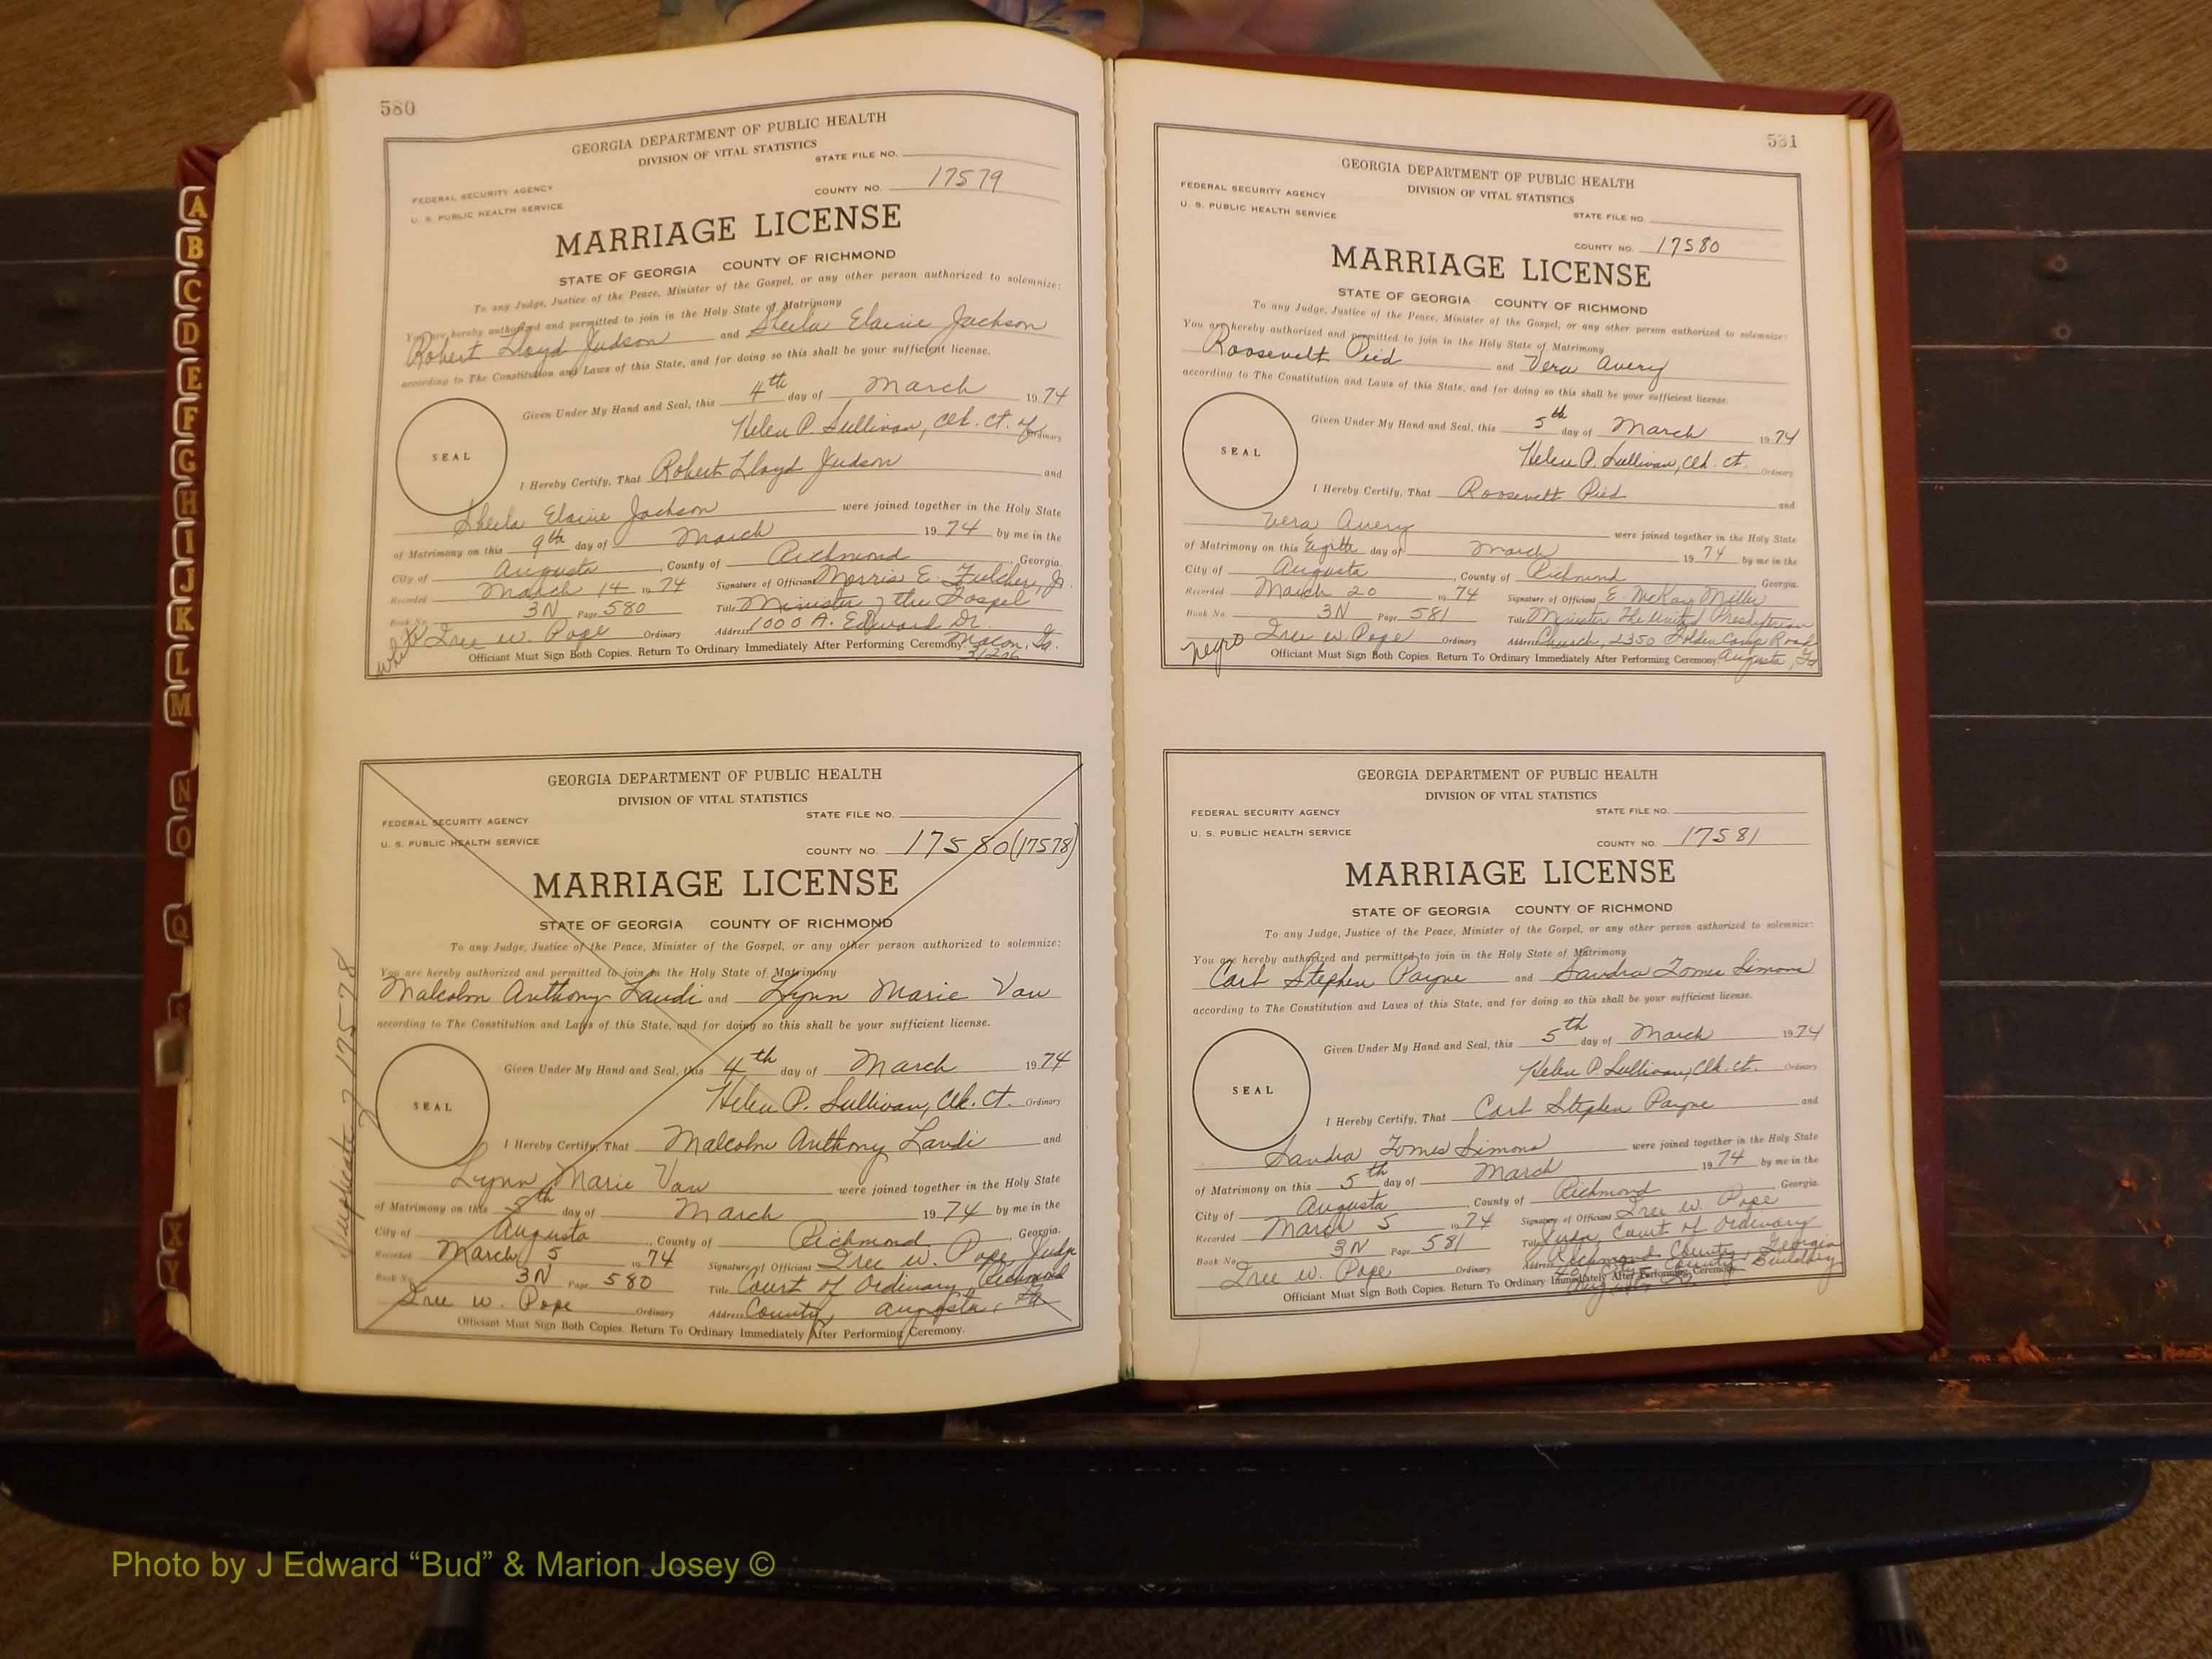 580
GEORGIA DEPARTMENT OF PUBLIC HEALTH
DIVISION OF VITAL STATISTICS
STATE FILE NO.
FEDERAL SECURITY AGENCY
U. S. PUBLIC HEALTH SERVICE
COUNTY NO. 17579
MARRIAGE LICENSE
STATE OF GEORGIA COUNTY OF RICHMOND
To any Judge, Justice of the Peace, Minister of the Gospel, or any other person authorized to solemnize:
You are hereby authorized and permitted to join in the Holy State of Matrimony
Robert Lloyd Judson and Sheila Elaine Jackson
according to The Constitution and Laws of this State, and for doing so this shall be your sufficient license.
Given Under My Hand and Seal, this 4th day of March 1974
Helen P. Sullivan, Clk. Ct. of Ordinary
SEAL
I Hereby Certify, That Robert Lloyd Judson and
Sheila Elaine Jackson were joined together in the Holy State
of Matrimony on this 9th day of March 1974 by me in the
City of Augusta, County of Richmond, Georgia.
Recorded March 14 1974 Signature of Officiant Morris E. Fulcher, Jr.
Book No. 3N Page 580 Title Minister of the Gospel
Iree W. Pope Ordinary Address 1000 A. Edward Dr.
Macon, Ga.
31206
white
Officiant Must Sign Both Copies. Return To Ordinary Immediately After Performing Ceremony.
GEORGIA DEPARTMENT OF PUBLIC HEALTH
DIVISION OF VITAL STATISTICS
FEDERAL SECURITY AGENCY
STATE FILE NO.
U. S. PUBLIC HEALTH SERVICE
COUNTY NO. 17580 (17578)
MARRIAGE LICENSE
STATE OF GEORGIA COUNTY OF RICHMOND
To any Judge, Justice of the Peace, Minister of the Gospel, or any other person authorized to solemnize:
You are hereby authorized and permitted to join in the Holy State of Matrimony
Malcolm Anthony Landi and Lynn Marie Van
according to The Constitution and Laws of this State, and for doing so this shall be your sufficient license.
Given Under My Hand and Seal, this 4th day of March 1974
Helen P. Sullivan, Clk. Ct. Ordinary
SEAL
I Hereby Certify, That Malcolm Anthony Landi and
Lynn Marie Van were joined together in the Holy State
of Matrimony on this 5th day of March 1974 by me in the
City of Augusta, County of Richmond, Georgia.
Recorded March 5 1974 Signature of Officiant Iree W. Pope, Judge
Book No. 3N Page 580 Title Court of Ordinary, Richmond
Iree W. Pope Ordinary Address County, Augusta, Ga.
Officiant Must Sign Both Copies. Return To Ordinary Immediately After Performing Ceremony.
Duplicate of 17578
581
GEORGIA DEPARTMENT OF PUBLIC HEALTH
DIVISION OF VITAL STATISTICS
FEDERAL SECURITY AGENCY
U. S. PUBLIC HEALTH SERVICE
STATE FILE NO.
COUNTY NO. 17580
MARRIAGE LICENSE
STATE OF GEORGIA COUNTY OF RICHMOND
To any Judge, Justice of the Peace, Minister of the Gospel, or any other person authorized to solemnize:
You are hereby authorized and permitted to join in the Holy State of Matrimony
Roosevelt Pied and Vera Avery
according to The Constitution and Laws of this State, and for doing so this shall be your sufficient license.
Given Under My Hand and Seal, this 5th day of March 1974
Helen P. Sullivan, Clk. Ct. Ordinary
SEAL
I Hereby Certify, That Roosevelt Pied and
Vera Avery were joined together in the Holy State
of Matrimony on this Eighth day of March 1974 by me in the
City of Augusta, County of Richmond Georgia.
Recorded March 20 1974 Signature of Officiant E. McKay Miller
Book No. 3N Page 581 Title Minister The United Presbyterian
Iree W. Pope Ordinary Address Church, 2350 Golden Camp Road
Augusta, Ga
negro
Officiant Must Sign Both Copies. Return To Ordinary Immediately After Performing Ceremony.
GEORGIA DEPARTMENT OF PUBLIC HEALTH
DIVISION OF VITAL STATISTICS
FEDERAL SECURITY AGENCY
STATE FILE NO.
U. S. PUBLIC HEALTH SERVICE
COUNTY NO. 17581
MARRIAGE LICENSE
STATE OF GEORGIA COUNTY OF RICHMOND
To any Judge, Justice of the Peace, Minister of the Gospel, or any other person authorized to solemnize:
You are hereby authorized and permitted to join in the Holy State of Matrimony
Carl Stephen Payne and Sandra Tomes Simons
according to The Constitution and Laws of this State, and for doing so this shall be your sufficient license.
Given Under My Hand and Seal, this 5th day of March 1974
Helen P. Sullivan, Clk. Ct. Ordinary
SEAL
I Hereby Certify, That Carl Stephen Payne and
Sandra Tomes Simons were joined together in the Holy State
of Matrimony on this 5th day of March 1974 by me in the
City of Augusta, County of Richmond Georgia.
Recorded March 5 1974 Signature of Officiant Iree W. Pope
Book No. 3N Page 581 Title Judge, Court of Ordinary
Iree W. Pope Ordinary Address Richmond County, Georgia
County Building
Officiant Must Sign Both Copies. Return To Ordinary Immediately After Performing Ceremony.
A
B
C
D
E
F
G
H
I
J
K
L
M
N
O
Q
S
X
Y
Photo by J Edward “Bud” & Marion Josey ©